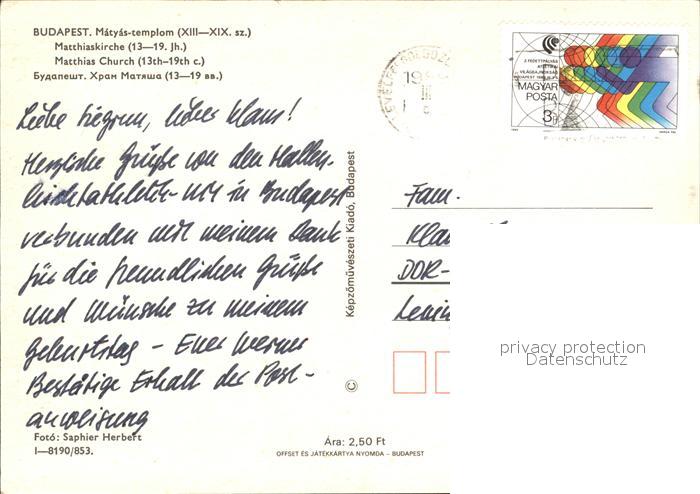 BUDAPEST. Mátyás-templom (XIII—XIX. sz.)
Matthiaskirche (13—19. Jh.)
Matthias Church (13th—19th c.)
Будапешт. Храм Матяша (13—19 вв.)
MAGYAR
POSTA
3 Ft
Liebe Siegrun, lieber Klaus!
Herzliche Grüße von den Hallen-
leichtathletik-WM in Budapest
verbunden mit meinem Dank
für die freundlichen Grüße
und Wünsche zu meinem
Geburtstag – Euer Werner
Bestätige Erhalt der Post-
anweisung
Képzőművészeti Kiadó, Budapest
©
Fam.
Klau
DDR-
privacy protection
Datenschutz
Fotó: Saphier Herbert
I—8190/853.
Ára: 2,50 Ft
OFFSET ÉS JÁTÉKKÁRTYA NYOMDA - BUDAPEST